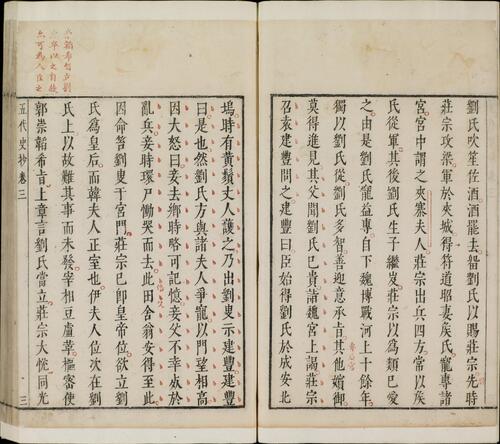 劉氏吹笙佐酒酒罷去畱劉氏以賜莊宗先時
莊宗攻梁軍於夾城得符道昭妻矦氏寵專諸
宮宮中謂之夾寨夫人莊宗出兵四方常以矦
氏從軍其後劉氏生子繼岌莊宗以爲類己愛
之由是劉氏寵益專自下魏博戰河上十餘年
獨以劉氏從劉氏多智善迎意承旨其他嬪御
莫得進見其父聞劉氏已貴詣魏宮上謁莊宗
召袁建豐問之建豐曰臣始得劉氏於成安北
塢時有黃鬚丈人護之乃出劉叟示建豐建豐
曰是也然劉氏方與諸夫人爭寵以門望相高
因大怒曰妾去鄉時略可記憶妾父不幸死於
亂兵妾時環尸慟哭而去此田舍翁安得至此
因命笞劉叟于宮門莊宗已即皇帝位欲立劉
氏爲皇后而韓夫人正室也伊夫人位次在劉
氏上以故難其事而未發宰相豆盧革樞密使
郭崇韜希旨上章言劉氏當立莊宗大悅同光
五代史抄卷三
三
韜希旨立劉
以之自
可為人臣之